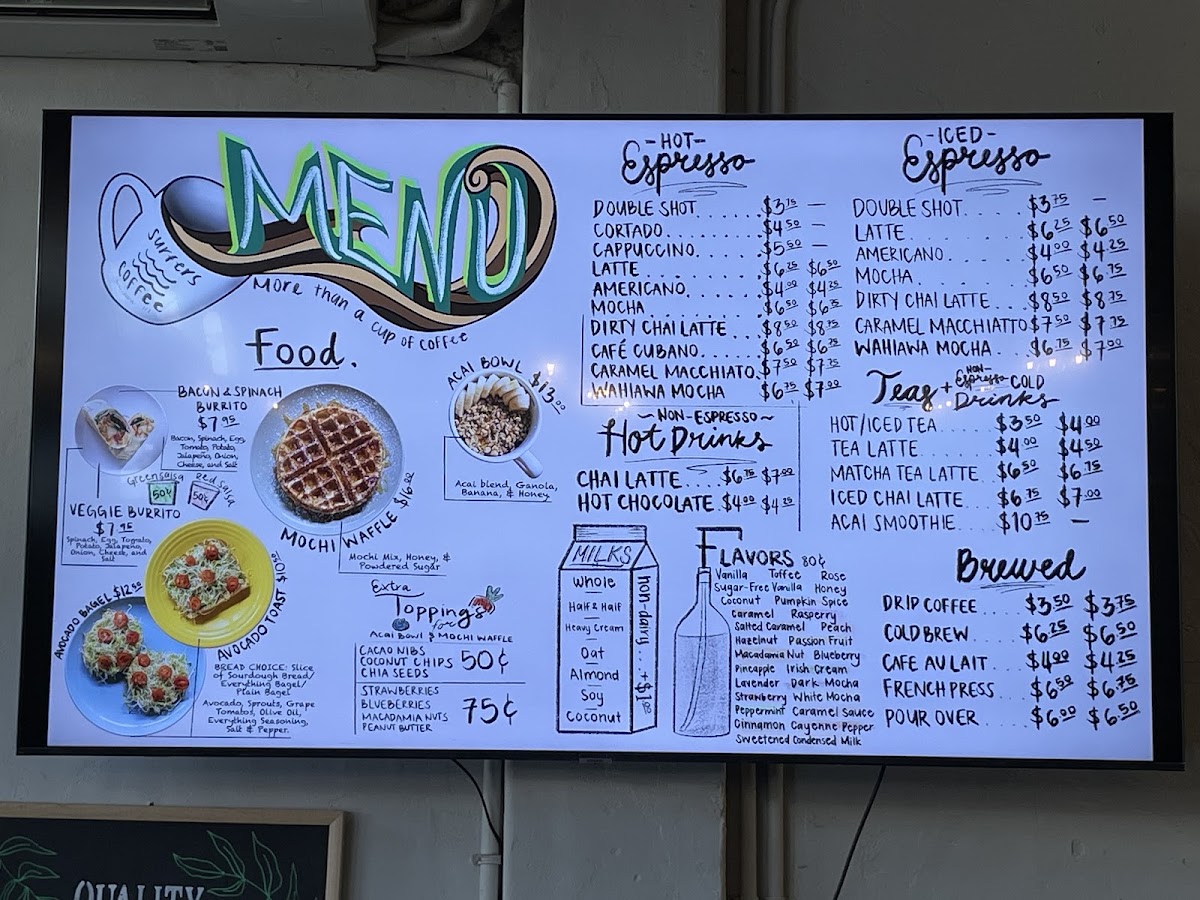 MENU
Surfers
Coffee
More than a cup of coffee
Food.
BACON & SPINACH
BURRITO
$7.95
Bacon, Spinach, Egg,
Tomato, Potato,
Jalapeño, Onion,
Cheese, and Salt
Green Salsa
50¢
Red Salsa
50¢
VEGGIE BURRITO
$7.95
Spinach, Egg, Tomato,
Potato, Jalapeño,
Onion, Cheese, and
Salt
MOCHI WAFFLE $16.00
Mochi Mix, Honey, &
Powdered Sugar
ACAI BOWL $13.00
Acai blend, Ganola,
Banana, & Honey
AVOCADO BAGEL $12.50
AVOCADO TOAST
BREAD CHOICE: Slice
of Sourdough Bread/
Everything Bagel/
Plain Bagel
Avocado, Sprouts, Grape
Tomatos, Olive Oil,
Everything Seasoning,
Salt & Pepper.
Extra
Toppings
for
Acai Bowl & MOCHI WAFFLE
CACAO NIBS
COCONUT CHIPS
CHIA SEEDS
50¢
STRAWBERRIES
BLUEBERRIES
MACADAMIA NUTS
PEANUT BUTTER
75¢
-HOT-
Espresso
DOUBLE SHOT....... $3.75 —
CORTADO......... $4.50 —
CAPPUCCINO...... $5.50 —
LATTE $6.25 $6.50
AMERICANO....... $4.00 $4.25
MOCHA.......... $6.50 $6.75
DIRTY CHAI LATTE... $8.50 $8.75
CAFÉ CUBANO...... $6.50 $6.75
CARAMEL MACCHIATO. $7.50 $7.75
WAHIAWA MOCHA $6.75 $7.00
~NON-ESPRESSO~
Hot Drinks
CHAI LATTE.... $6.75 $7.00
HOT CHOCOLATE $4.00 $4.25
MILKS
Whole
Half & Half
Heavy Cream
Oat
Almond
Soy
Coconut
non-dairy...+$1.00
FLAVORS 80¢
Vanilla Toffee Rose
Sugar-Free Vanilla Honey
Coconut Pumpkin Spice
Caramel Rasperry
Salted Caramel Peach
Hazelnut Passion Fruit
Macadamia Nut Blueberry
Pineapple Irish Cream
Lavender Dark Mocha
Strawberry White Mocha
Peppermint Caramel Sauce
Cinnamon Cayenne Pepper
Sweetened Condensed Milk
-ICED-
Espresso
DOUBLE SHOT....... $3.75 —
LATTE......... $6.25 $6.50
AMERICANO....... $4.00 $4.25
MOCHA......... $6.50 $6.75
DIRTY CHAI LATTE... $8.50 $8.75
CARAMEL MACCHIATTO $7.50 $7.75
WAHIAWA MOCHA... $6.75 $7.00
Teas + NON-Espresso COLD
Drinks
HOT/ICED TEA..... $3.50 $4.00
TEA LATTE........ $4.00 $4.50
MATCHA TEA LATTE $6.50 $6.75
ICED CHAI LATTE... $6.75 $7.00
ACAI SMOOTHIE.... $10.75 —
Brewed
DRIP COFFEE.... $3.50 $3.75
COLD BREW...... $6.25 $6.50
CAFE AU LAIT.... $4.00 $4.25
FRENCH PRESS.... $6.50 $6.75
POUR OVER...... $6.00 $6.50
QUALITY